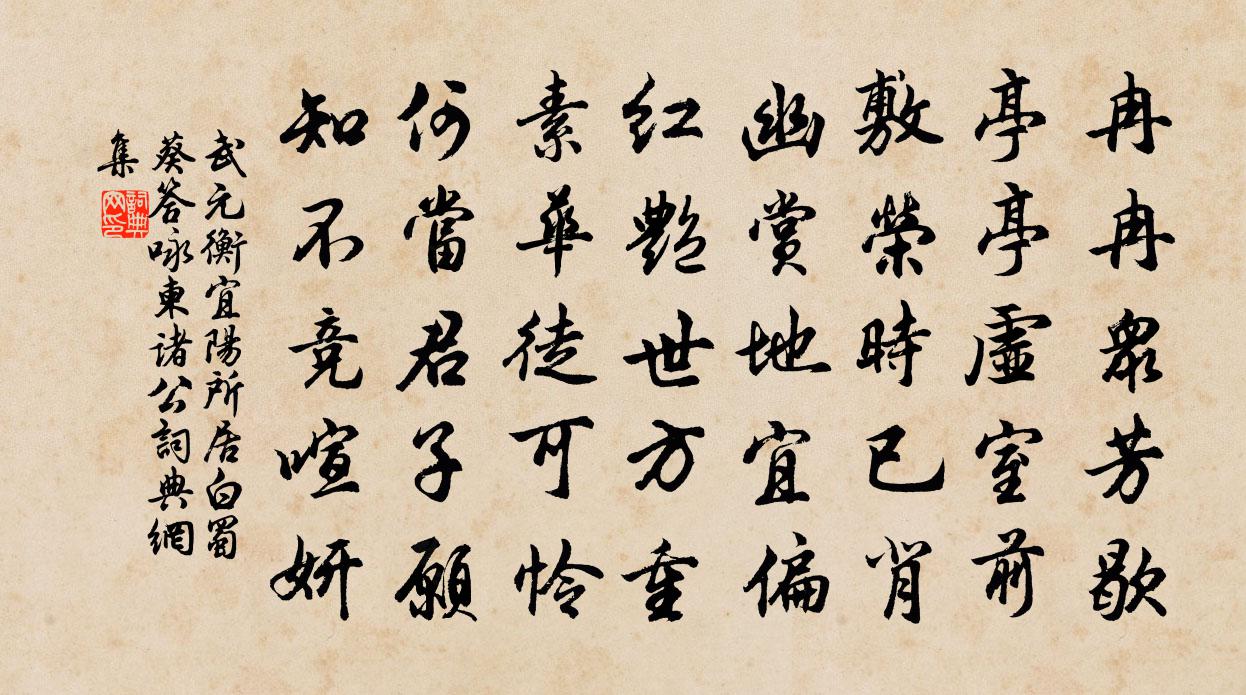 冉冉眾芳歇
亭亭虛室前
敷榮時已背
幽賞地宜偏
紅艷世方重
素華徒可怜
何當君子願
知不竞喧妍
武元衡宜陽所居白蜀
葵答咏東諸公詞典網
集
詞典
網印